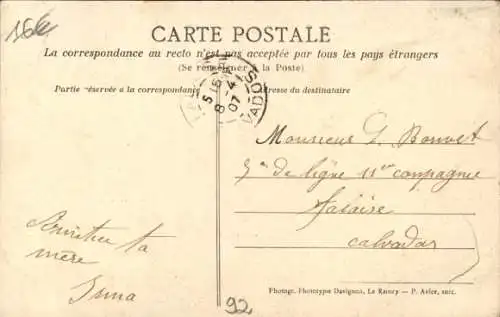 16e
CARTE POSTALE
La correspondance au recto n'est pas acceptée par tous les pays étrangers
(Se renseigner à la Poste)
Partie réservée à la correspondance
Adresse du destinataire
8-4
07
Monsieur G. Bonvet
5me de ligne 11me compagnie
Falaise
Calvados
ta
mère
92
Photogr. Phototypie Davignon, Le Raincy — P. Asler, succ.